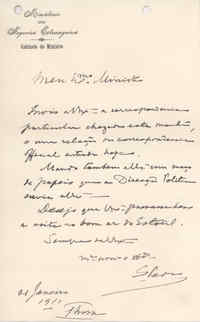 Ministerio
dos
Negocios Estrangeiros
Gabinete do Ministro
Meu Exmo Ministro
Envio a V. Ex. a correspondencia
particular chegada esta manhã,
e uma relação da correspondencia
official entrada hoje.
Mando tambem a V. Ex. um maço
de papeis que a Direcção Politica
envia a V. Ex.
Desejo que V. Ex.
a noite no bom ar do Estoril.
Sempre de V. Ex.
1911